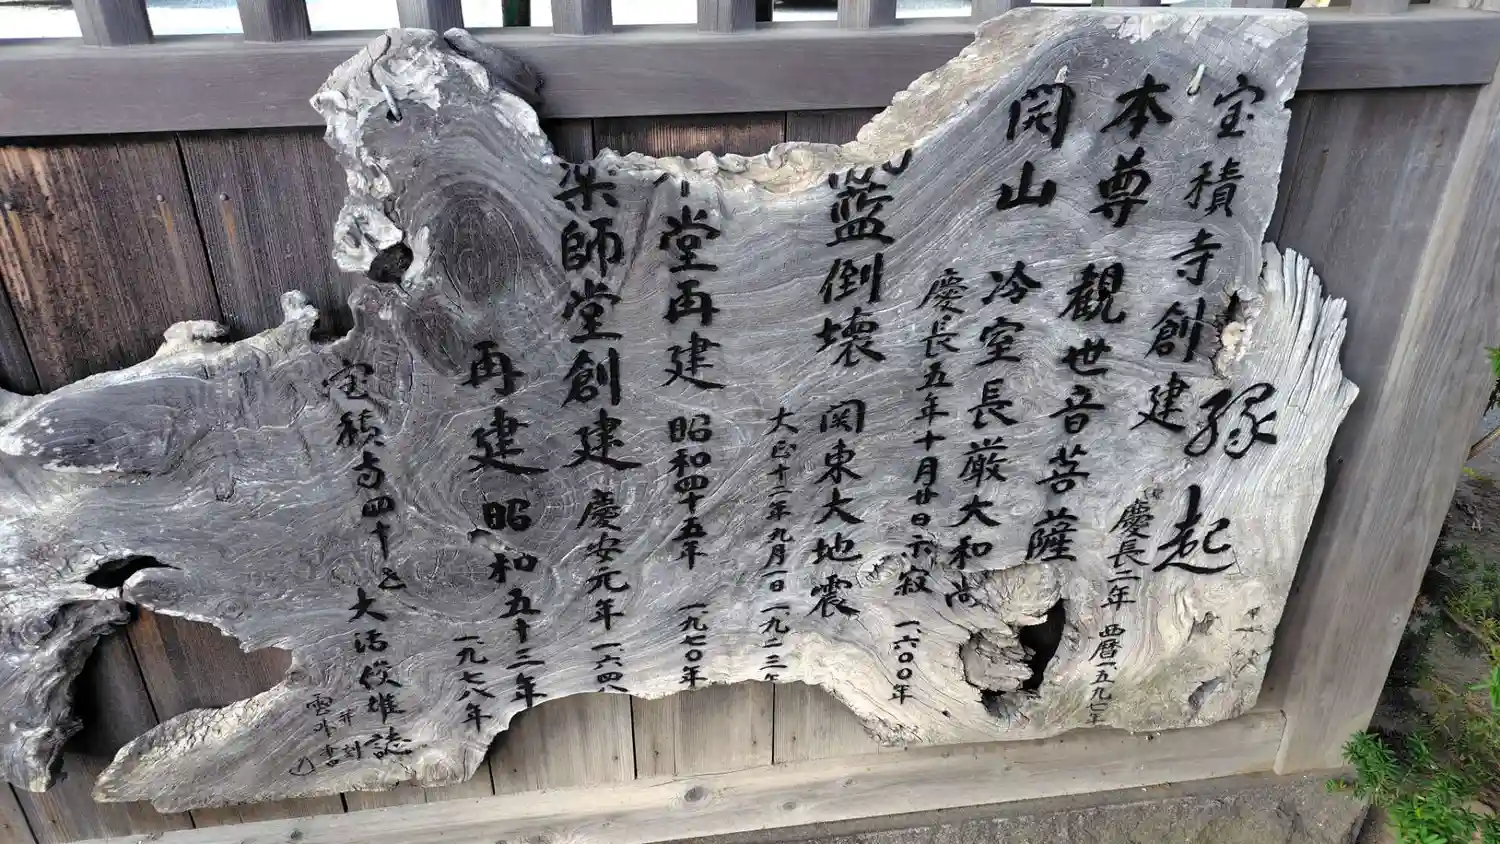 宝積寺創建 慶長二年 西暦一五九七年
縁起
本尊 観世音菩薩
開山 冷室長厳大和尚
慶長五年十月廿日示寂 一六〇〇年
藍倒壊 関東大地震
大正十二年九月一日 一九二三年
堂再建 昭和四十五年 一九七〇年
薬師堂創建 慶安元年 一六四八
再建 昭和五十三年
一九七八年
宝積寺四十 大活俊雄誌